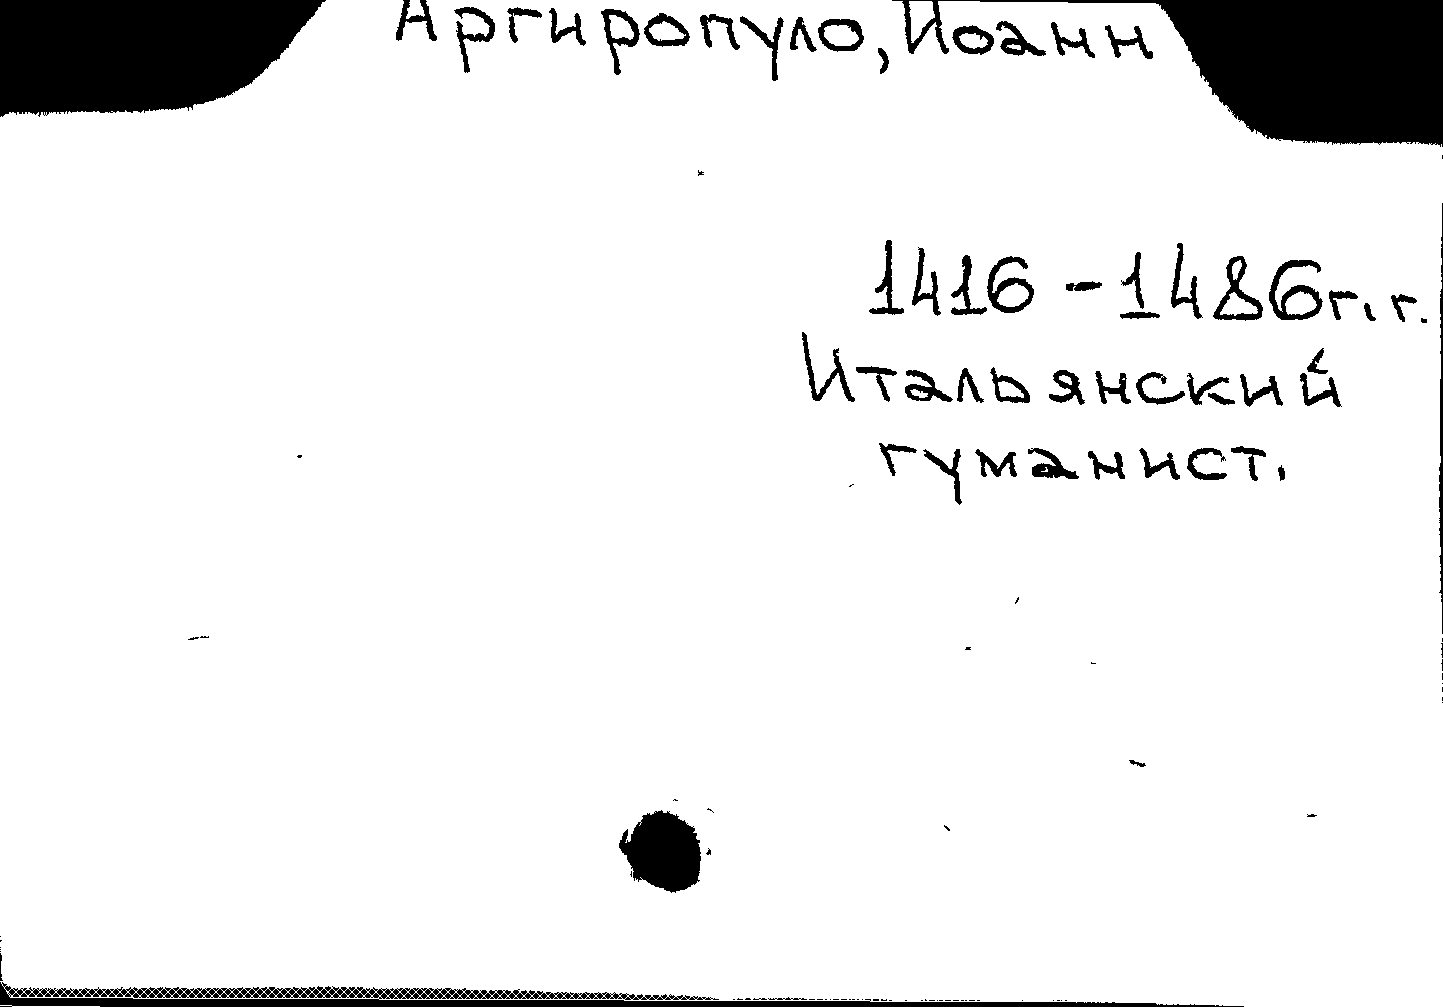 Аргиропуло, Иоанн
1416-1486 г.г.
Итальянский
гуманист.